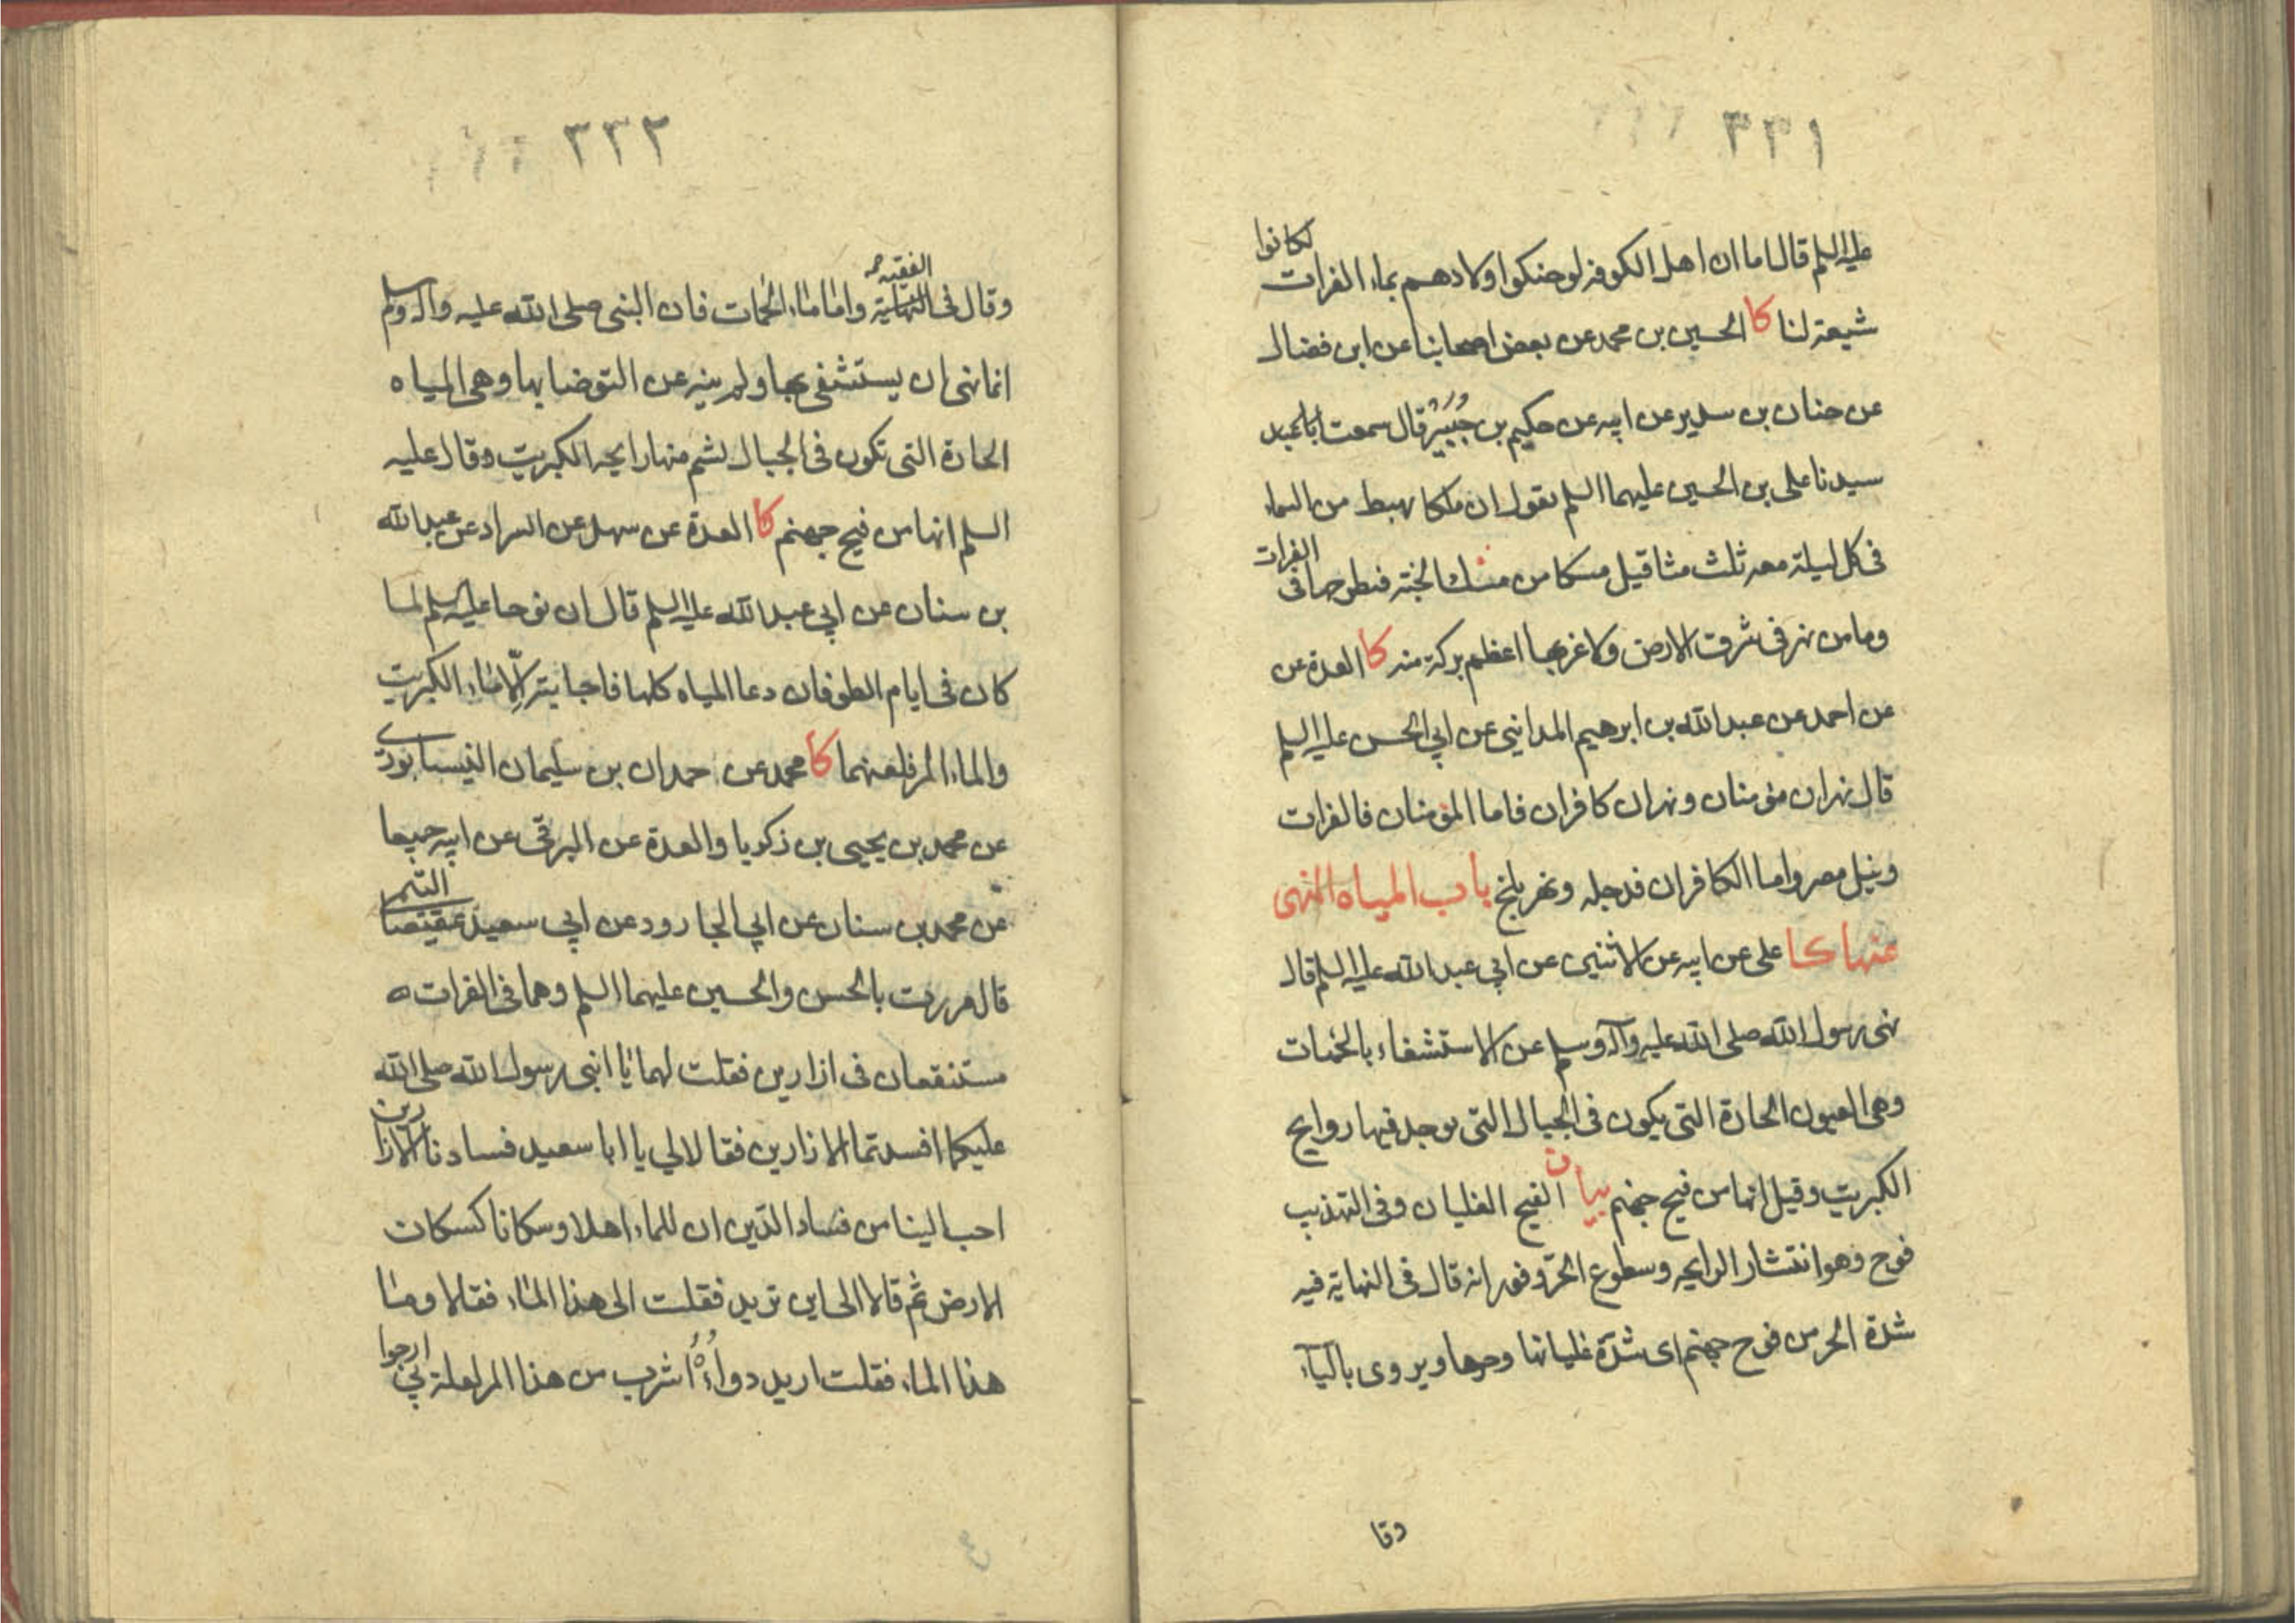 ٣٣١
عليه السلم قال اما ان اهل الكوفه لو حنكوا اولادهم بماء الفرات لكانوا
شيعة لنا كا الحسين بن محمد عن بعض اصحابنا عن ابن فضال
عن حنان بن سدير عن ابيه عن حكيم بن جُبَيْر قال سمعت
سيدنا على بن الحسين عليهما السلم يقول ان ملكا يهبط من السماء
فى كل ليلة معه ثلث مثاقيل مسكا من مسك الجنة فيطرحها فى الفرات
وما من نهر فى شرق الارض ولا غربها اعظم بركة منه كا العدة عن
عن احمد عن عبد الله بن ابرهيم المدايني عن ابي الحسن عليه السلم
قال نهران مؤمنان ونهران كافران فاما المؤمنان فالفرات
ونيل مصر واما الكافران فدجله ونهر بلخ باب المياه المنهى
عنها كا على عن ابيه عن الاثنين عن ابي عبد الله عليه السلم قال
نهى رسول الله صلى الله عليه وآله وسلم عن الاستشفاء بالحمات
وهى العيون الحارة التى يكون فى الجبال التى يوجد فيها روايح
الكبريت وقيل انها من فيح جهنم بيان الفيح الغليان وفى التهذيب
فوح وهو انتشار الرايحه وسطوع الحرّ وفورانه قال فى النهاية فيه
شدة الحر من فوح جهنم اى شدّة غليانها وحرها ويروى بالياء
وقا
٣٣٢
وقال فى الفقيه واما ماء الحمات فان النبى صلى الله عليه وآله وسلم
انما نهى ان يستشفى بها ولم ينه عن التوضا بها وهى المياه
الحارة التى تكون فى الجبال يشم منها رايحه الكبريت وقال عليه
السلم انها من فيح جهنم كا العدة عن سهل عن السراد عن عبد الله
بن سنان عن ابي عبد الله عليه السلم قال ان نوحا عليه السلم لما
كان فى ايام الطوفان دعا المياه كلها فاجابته الّا ماء الكبريت
والماء المر فلعنهما كا محمد عن حمدان بن سليمان النيسابورى
عن محمد بن يحيى بن زكريا والعدة عن البرقى عن ابيه جميعا
عن محمد بن سنان عن ابي الجارود عن ابي سعيد عقيصا التيمى
قال مررت بالحسن والحسين عليهما السلم وهما فى الفرات
مستنقعان فى ازارين فقلت لهما يا ابنى رسول الله صلى الله
عليكما افسدتما الازارين فقالا لي يا ابا سعيد فسادنا الازارين
احب الينا من فساد الدّين ان للماء اهلا وسكانا كسكان
الارض ثم قالا الى اين تريد فقلت الى هذا الماء فقالا وما
هذا الماء فقلت اريد دواءه اشرب من هذا المر لعلة بي ارجوا